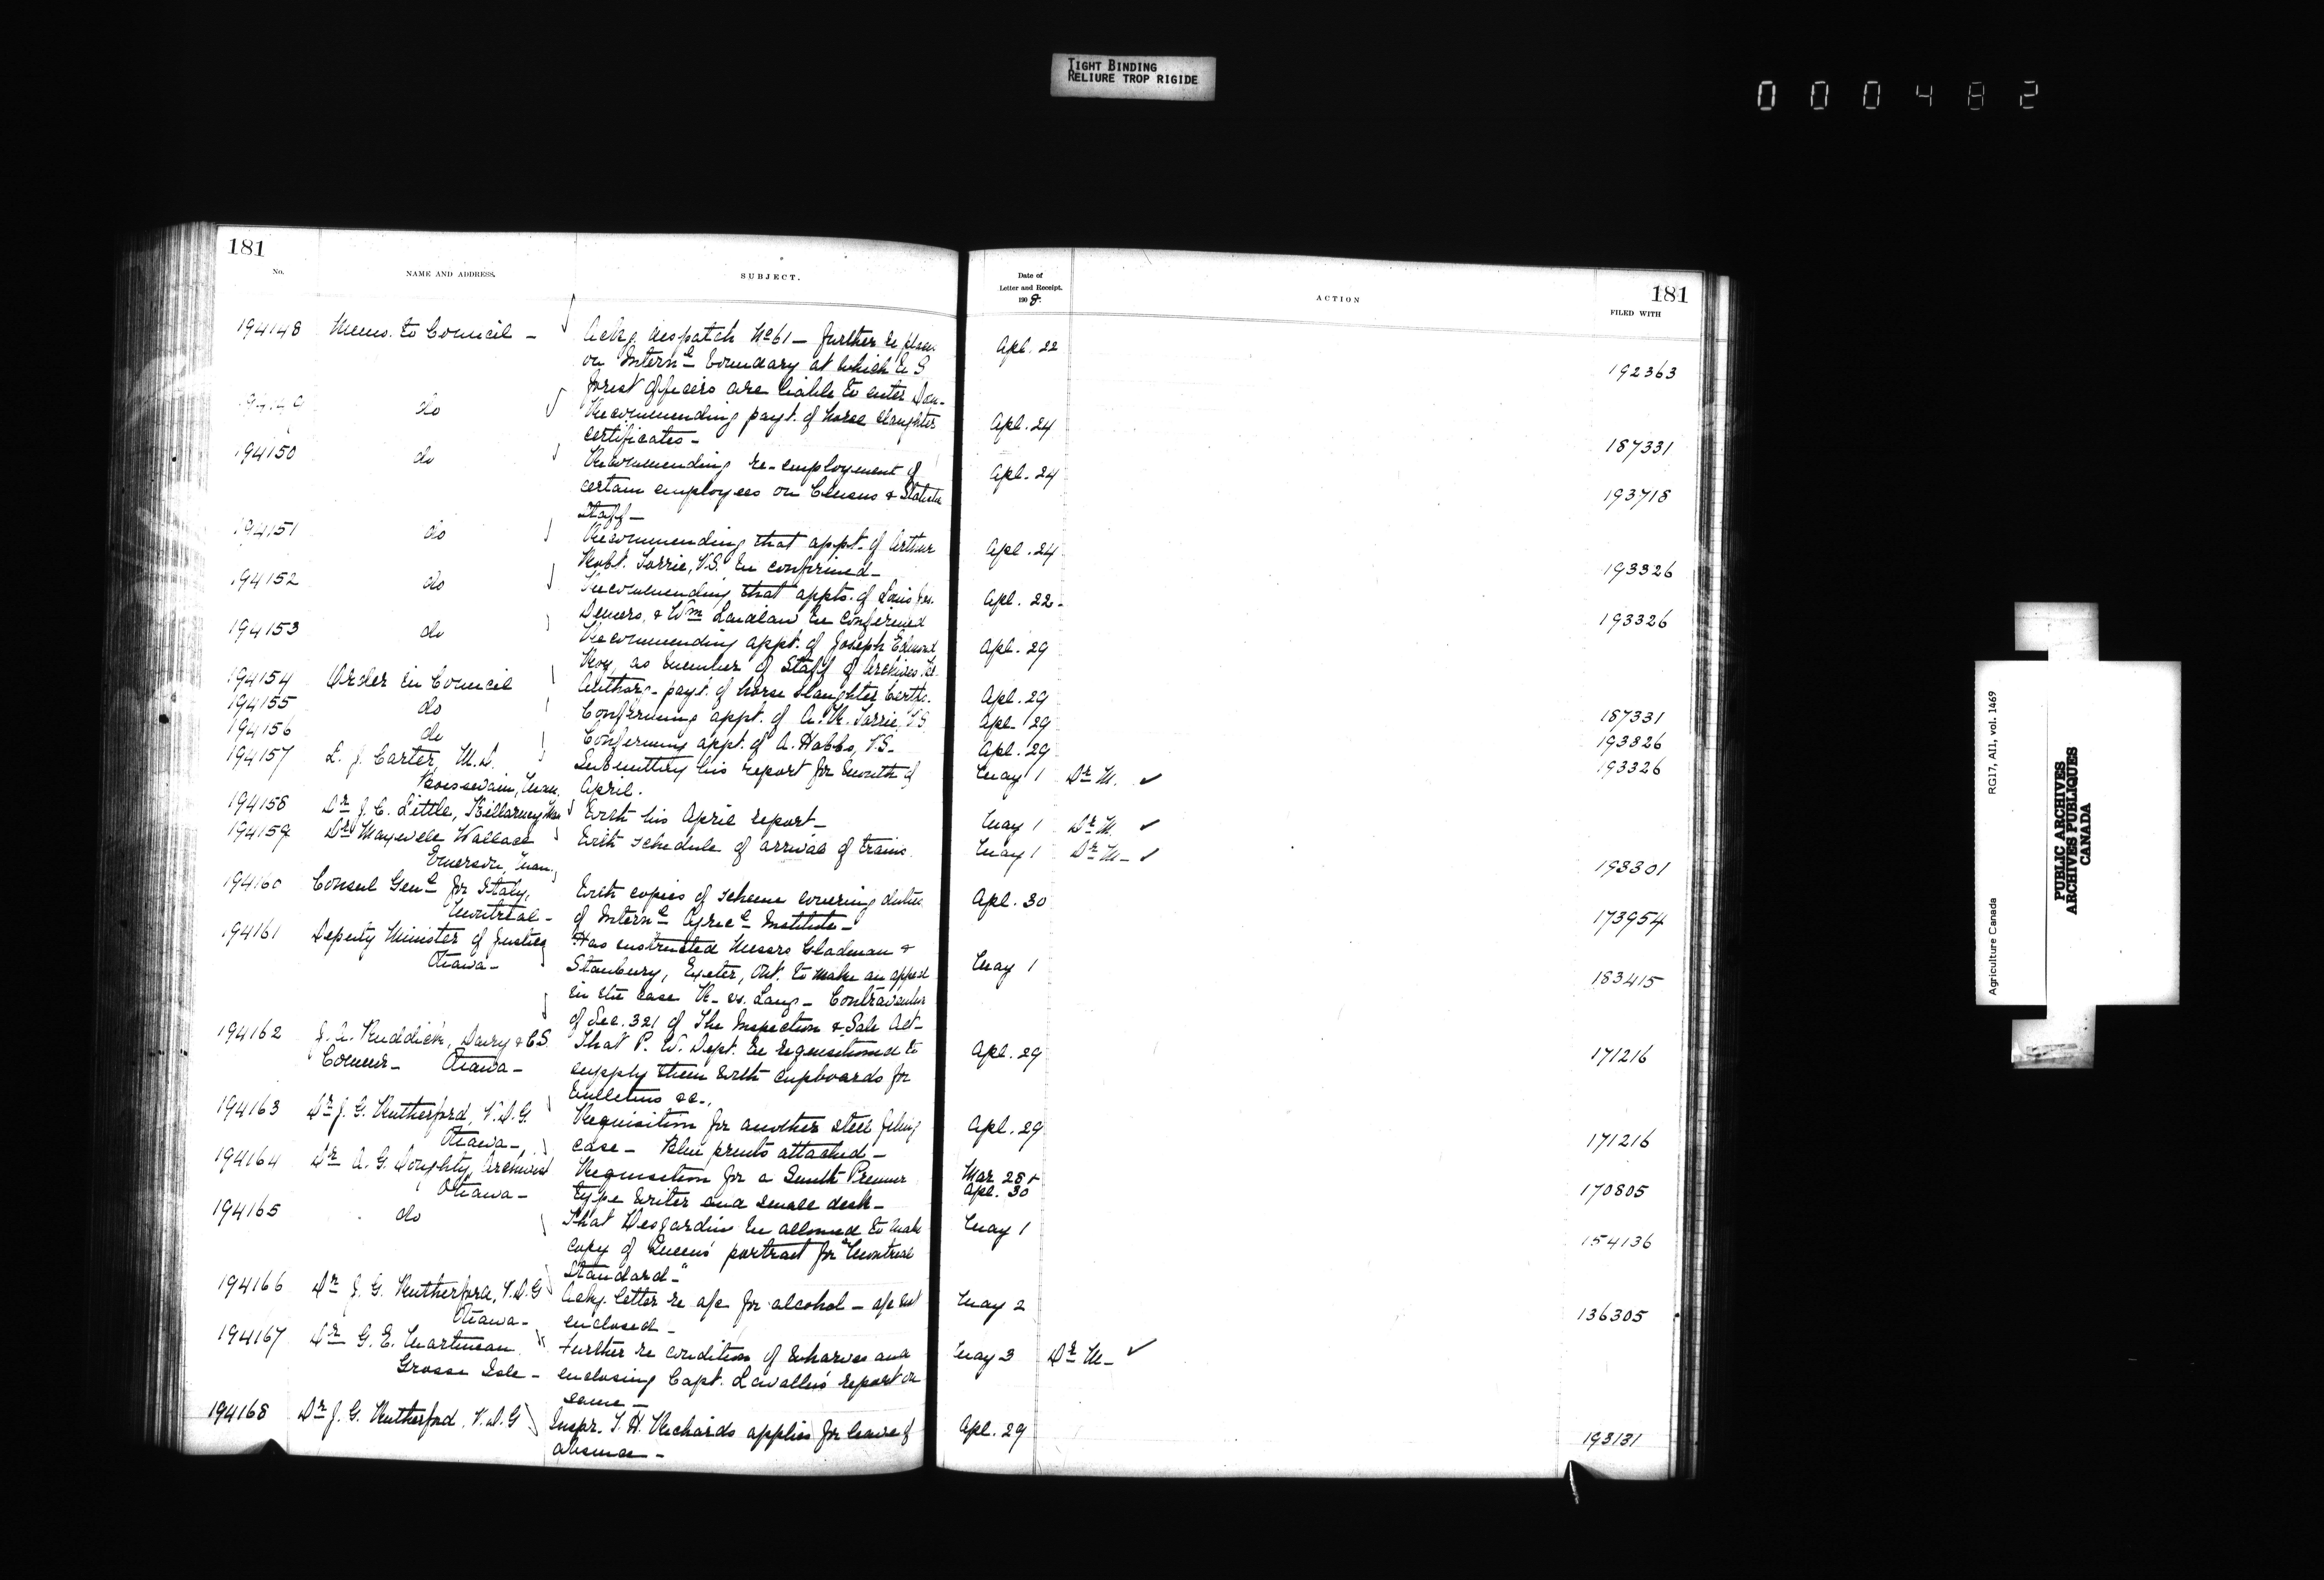 TIGHT BINDING
RELIURE TROP RIGIDE
000482
181
No. NAME AND ADDRESS. SUBJECT. Date of Letter and Receipt. 1908. ACTION 181 FILED WITH
194148 Memo. to Council - Ackg. despatch No 61 - further re places Apl. 22
on Internl boundary at which U S 192363
forest officers are liable to enter Dom-
do Recommending payt. of horse slaughter Apl. 24
certificates - 187331
194150 do Recommending re-employment of Apl. 24
certain employees on Census & Statistics 193718
Staff -
194151 do Recommending that appt. of Arthur Apl. 24
Robt. Torrie, V.S. be confirmed - 193326
194152 do Recommending that appts. of Louis Jos. Apl. 22-
Demers, & Wm Laidlaw be confirmed 193326
194153 do Recommending appt. of Joseph Edmond Apl. 29
Roy, as member of Staff of Archives
194154 Order in Council Authorg. payt. of horse slaughter Certfs. Apl. 29 187331
194155 do Confirming appt. of A. R. Torrie, V.S Apl. 29 193326
194156 do Confirming appt. of A. Hobbs, V.S. Apl. 29 193326
194157 L. J. Carter, M.D. Submitting his report for month of May 1 Dr M. ✓
Boissevain, Man. April.
194158 Dr J. C. Little, Killarney Man With his April report - May 1 Dr M. ✓
194159 Dr Maxwell Wallace With schedule of arrival of trains. May 1 Dr M- ✓
Emerson, Man. 193301
194160 Consul Genl for Italy, With copies of scheme covering duties Apl. 30
Montreal - of Internl Agricl Institute - 173954
194161 Deputy Minister of Justice Has instructed Messrs Gladman & May 1
Ottawa - Stanbury, Exeter, Ont. to make an appeal 183415
in the case R. vs. Lang - Contravention
of Sec. 321 of The Inspection & Sale Act -
194162 J. A. Ruddick, Dairy & C.S. That P. W. Dept. be requisitioned to Apl. 29
Commr - Ottawa - supply them with cupboards for 171216
bulletins &c.,
194163 Dr J. G. Rutherford, V.D.G. Requisition for another steel filing Apl. 29
Ottawa - case - Blue prints attached - 171216
194164 Dr A. G. Doughty, Archivist Requisition for a Smith Premier Mar 28 &
Ottawa - type writer and small desk - Apl. 30 170805
194165 do That Desjardins be allowed to make May 1
copy of Queen's portrait for "Montreal 154136
Standard -"
194166 Dr J. G. Rutherford, V.D.G Ackg. letter re a/c for alcohol - a/c not May 2
Ottawa - enclosed - 136305
194167 Dr G. E. Martineau Further re condition of wharves and May 3 Dr M- ✓
Grosse Isle - enclosing Capt. Lavallée's report on
same -
194168 Dr J. G. Rutherford. V.D.G Inspr. T. H. Richards applies for leave of Apl. 29
absence - 193131
Agriculture Canada RG17, AII, vol. 1469
PUBLIC ARCHIVES
ARCHIVES PUBLIQUES
CANADA